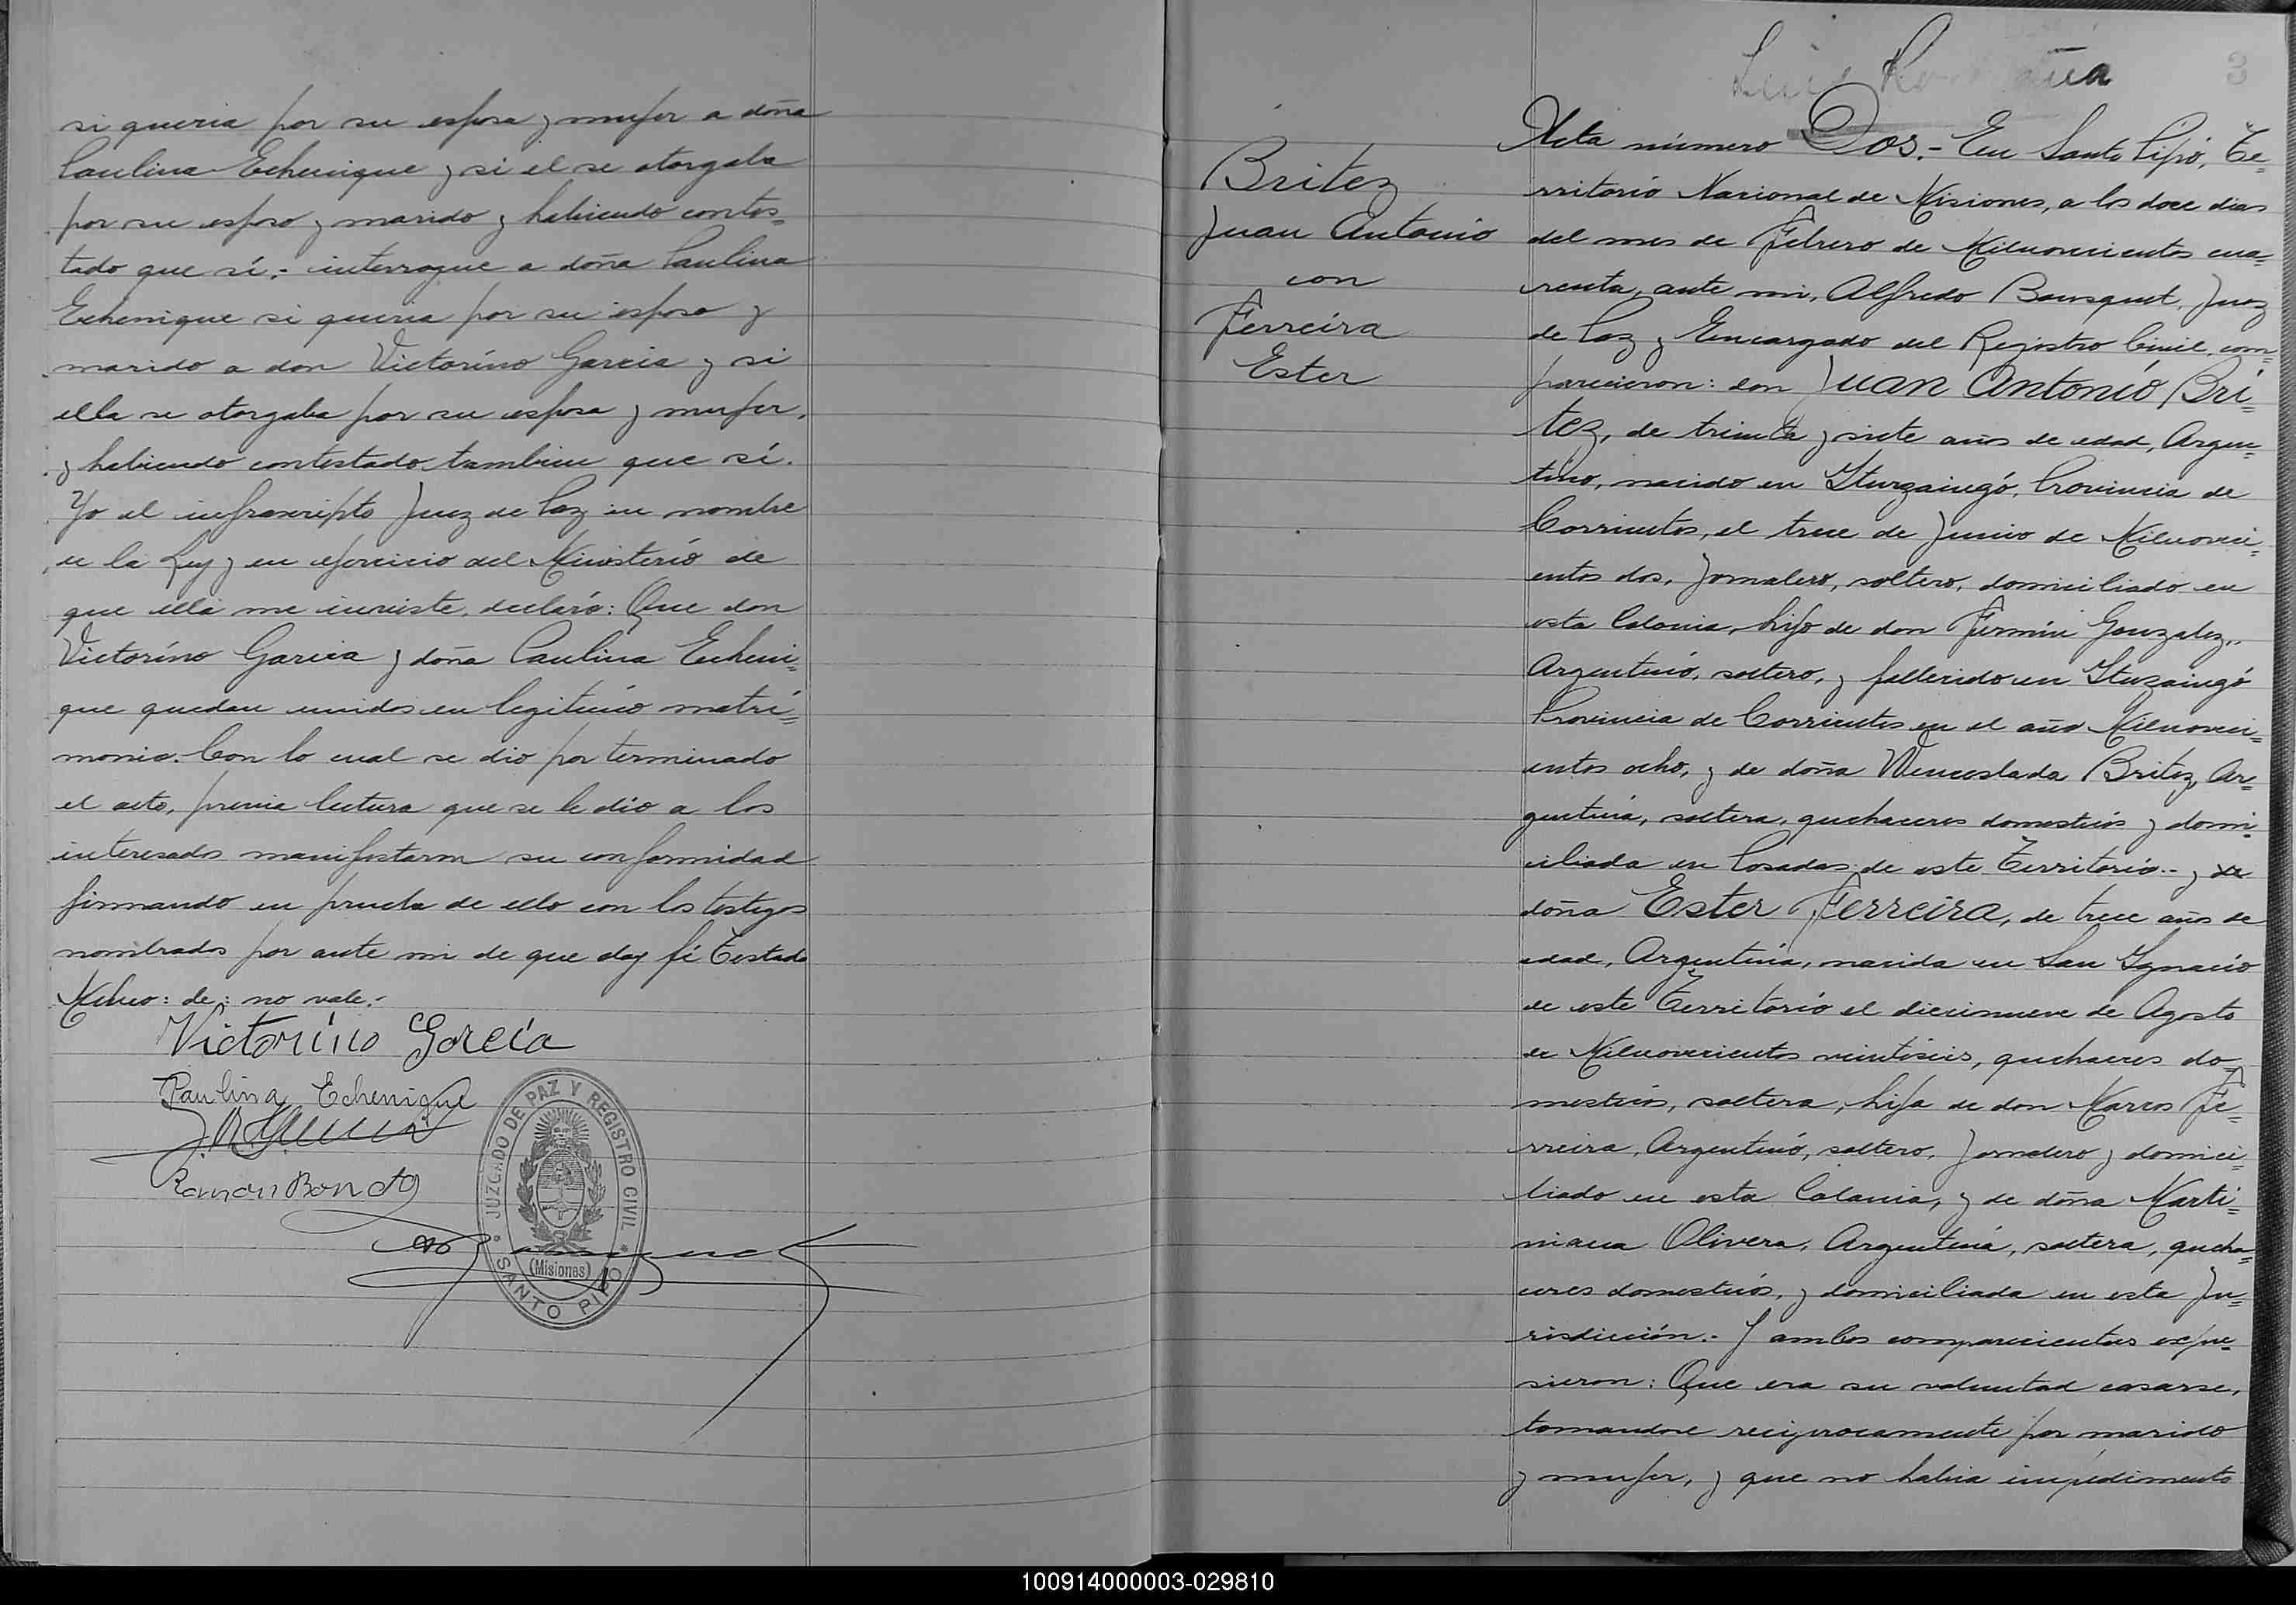 si queria por su esposa y mujer a doña
Paulina Echenique y si el se otorgaba
por su esposo y marido y habiendo contes=
tado que sí:- interrogue a doña Paulina
Echenique si queria por su esposo y
marido a don Victoríno Garcia y si
ella se otorgaba por su esposa y mujer,
y habiendo contestado tambien que sí.
Yo el infrascripto Juez de Paz en nombre
de la Ley y en ejercicio del Ministerio de
que ella me inviste, declaró: Que don
Victoríno Garcia y doña Paulina Echeni=
que quedan unidos en legitimo matri=
monio. Con lo cual se dio por terminado
el acto, previa lectura que se le dio a los
interesados manifestaron su conformidad
firmando en prueba de ello con los testigos
nombrados por ante mi de que doy fé Testado
de: no vale.-
Victoríno García
Paulina Echenique
JUZGADO DE PAZ Y REGISTRO CIVIL
(Misiones)
SANTO PIPO
3
Britez
Juan Antonio
con
Ferreira
Ester
Acta número Dos.- En Santo Pipó, Te=
rritorio Nacional de Misiones, a los doce dias
del mes de Febrero de Milnovecientos cua=
renta, ante mi, Alfredo Bousquet, Juez
de Paz y Encargado del Registro Civil, com=
parecieron: don Juan Antonio Bri=
tez, de treinta y siete años de edad, Argen=
tino, nacido en Ituzaingó, Provincia de
Corrientes, el trece de Junio de Milnoveci=
entos dos, Jornalero, soltero, domiciliado en
esta Colonia, hijo de don Fermín Gonzalez,
Argentino, soltero, y fallecido en Ituzaingó
Provincia de Corrientes en el año Milnoveci=
entos ocho, y de doña Wenceslada Britez, Ar=
gentina, soltera, quehaceres domesticos y domi=
ciliada en Posadas de este Territorio.- y
doña Ester Ferreira, de trece años de
edad, Argentina, nacida en San Ignacio
de este Territorio el diecinueve de Agosto
de Milnovecientos veintiseis, quehaceres do=
mesticos, soltera, hija de don Marcos Fe=
rreira, Argentino, soltero, Jornalero y domici=
liado en esta Colonia, y de doña Marti=
niana Olivera, Argentina, soltera, queha=
ceres domesticos, y domiciliada en esta Ju=
risdicción.- Y ambos comparecientes expu=
sieron: Que era su voluntad casarse,
tomandose reciprocamente por marido
y mujer, y que no habia impedimento
100914000003-029810